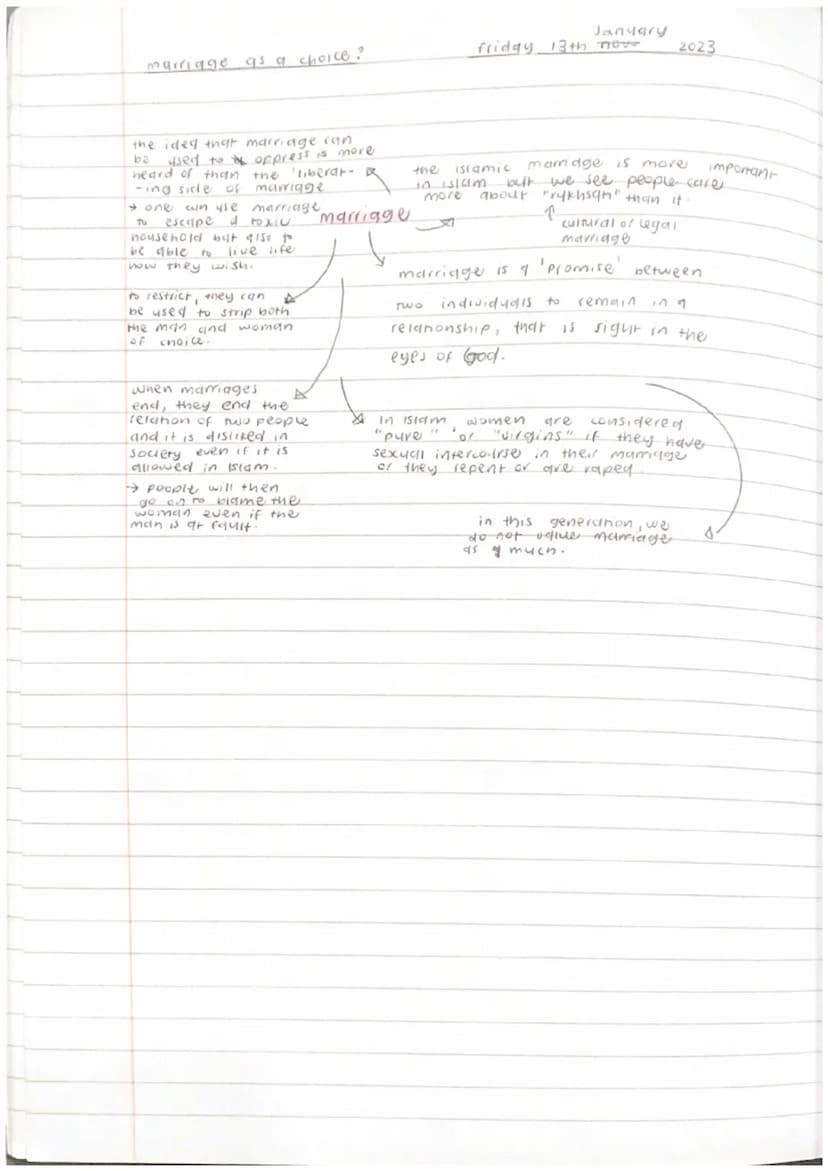 marriage as a choice?
January
friday 13th nov 2023
the idea that marriage can
be used to oppress is more
heard of than the 'liberat-
-ing side of marriage
→ one can use marriage
to escape a toxic
household but also to
be able to live life
how they wish.
marriage
the islamic marriage is more important
in islam but we see people care
more about "rukhsati" than it.
↑
cultural or legal
marriage
marriage is a 'promise' between
two individuals to remain in a
relationship, that is right in the
eyes of God.
to restrict, they can
be used to strip both
the man and woman
of choice.
when marriages
end, they end the
relation of two people
and it is disliked in
society even if it is
allowed in islam.
→ people will then
go on to blame the
woman even if the
man is at fault.
In Islam, women are considered
"pure" or "virgins" if they have
sexual intercourse in their marriage
or they repent or are raped.
in this generation, we
do not value marriage
as much.